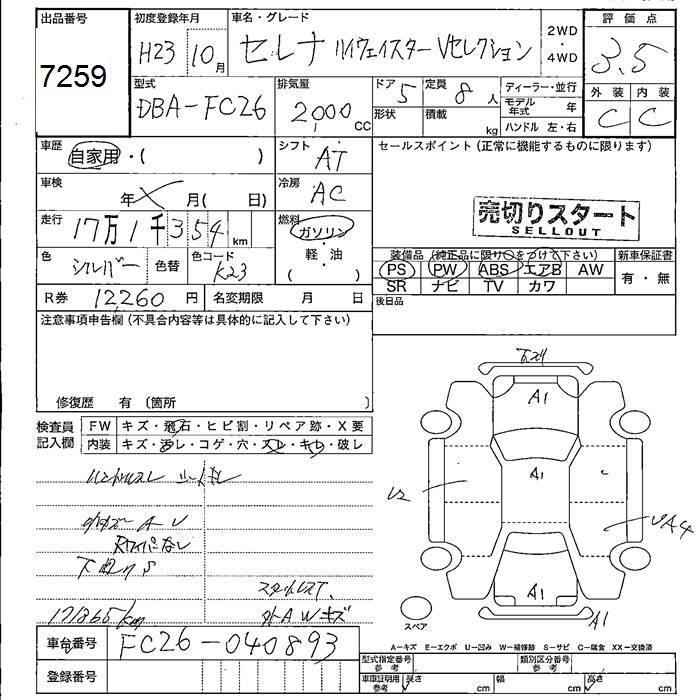 出品番号 初度登録年月 車名・グレード 2WD・4WD 評価点
7259 H23 10月 セレナ ハイウェイスター Vセレクション 3.5
型式 排気量 ドア 定員 ディーラー・並行 外装 内装
DBA-FC26 2000 CC 5 8人 モデル年式 年 C C
形状 積載 kg ハンドル 左・右
車歴 自家用・( ) シフト AT セールスポイント (正常に機能するものに限ります)
車検 年 月( 日) 冷房 AC
売切りスタート
SELLOUT
走行 17万1千354km 燃料 ガソリン
軽・油
( )
色 シルバー 色替 色コード K23
装備品 (純正品に限り○をつけて下さい) 新車保証書
PS PW ABS エアB AW 有・無
SR ナビ TV カワ
R券 12260円 名変期限 月 日 後日品
注意事項申告欄 (不具合内容等は具体的に記入して下さい)
修復歴 有 (箇所 )
検査員記入欄 FW キズ・飛石・ヒビ割・リペア跡・X要
内装 キズ・汚レ・コゲ・穴・スレ・キレ・破レ
ハンドルスレ シートキレ
A U
ワイパーなし
下廻りS
171865km
外AWキズ
A1
A1
A1
U2
UA4
A1
スペア
A-キズ E-エクボ U-凹み W-補修跡 S-サビ C-腐食 XX-交換済
車台番号 FC26-040893
登録番号
型式指定番号 参考 類別区分番号 参考
車庫証明用 参考 長さ cm 幅 cm 高さ cm